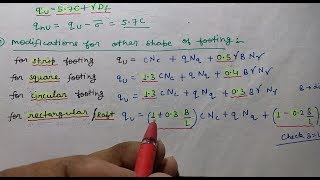 qu = 5.7C + γDf
qnu = qu - σ̄ = 5.7C
modifications for other shape of footing :-
for strip footing qu = CNc + q Nq + 0.5 γ B Nγ
for square footing qu = 1.3 CNc + q Nq + 0.4 γ B Nγ
for circular footing qu = 1.3 CNc + q Nq + 0.3 γ B Nγ
for rectangular / raft qu = (1 + 0.3 B/L) CNc + q Nq + (1 - 0.2 B/L)